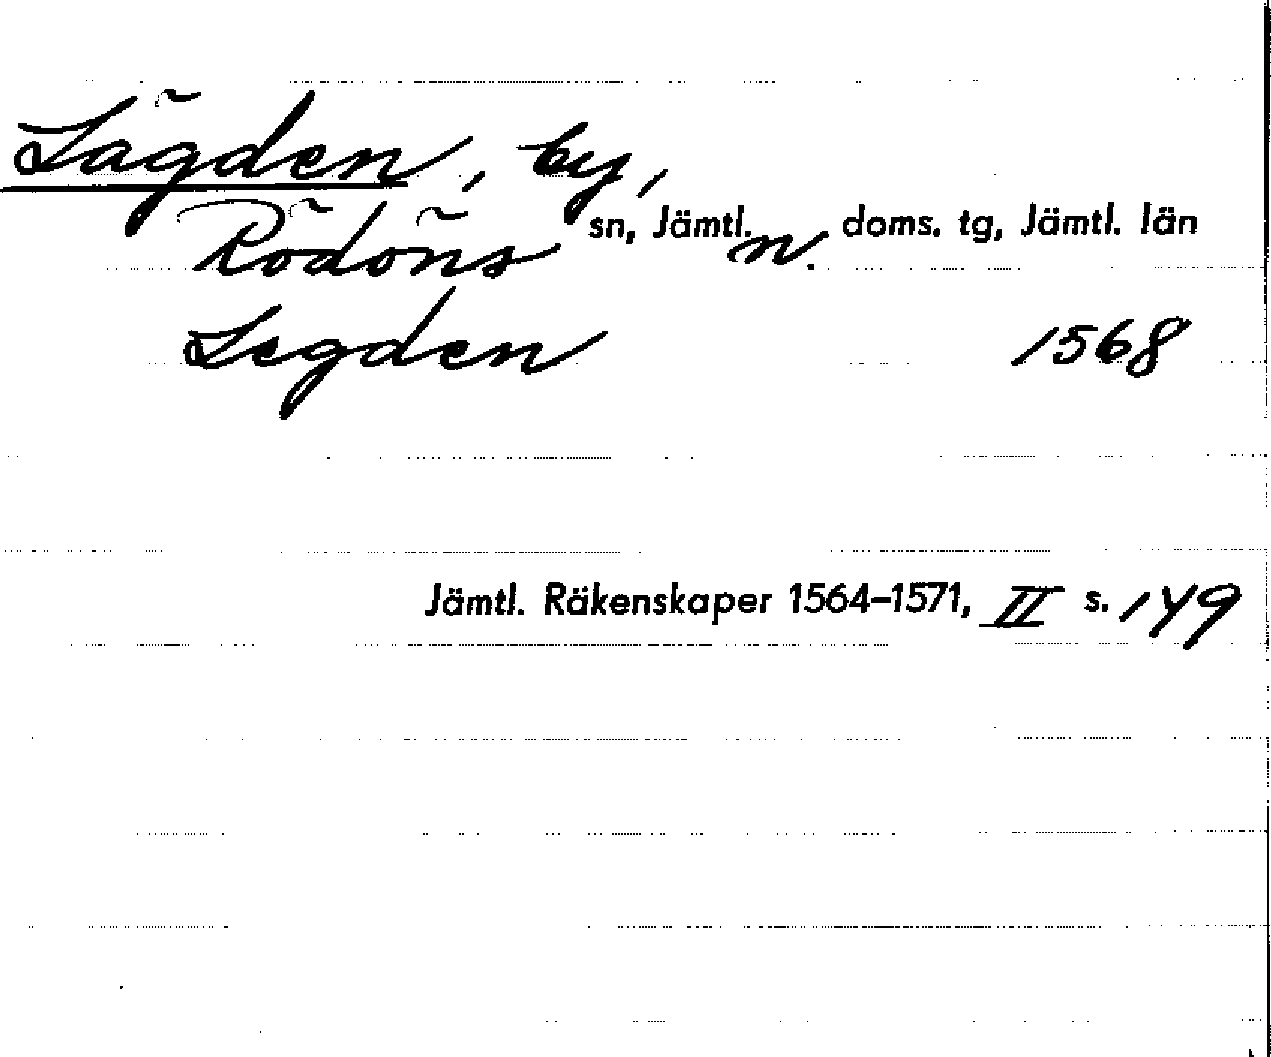 Lägden, by,
Rödöns sn, Jämtl. n. doms. tg, Jämtl. län
Legden 1568
Jämtl. Räkenskaper 1564–1571, II s. 149